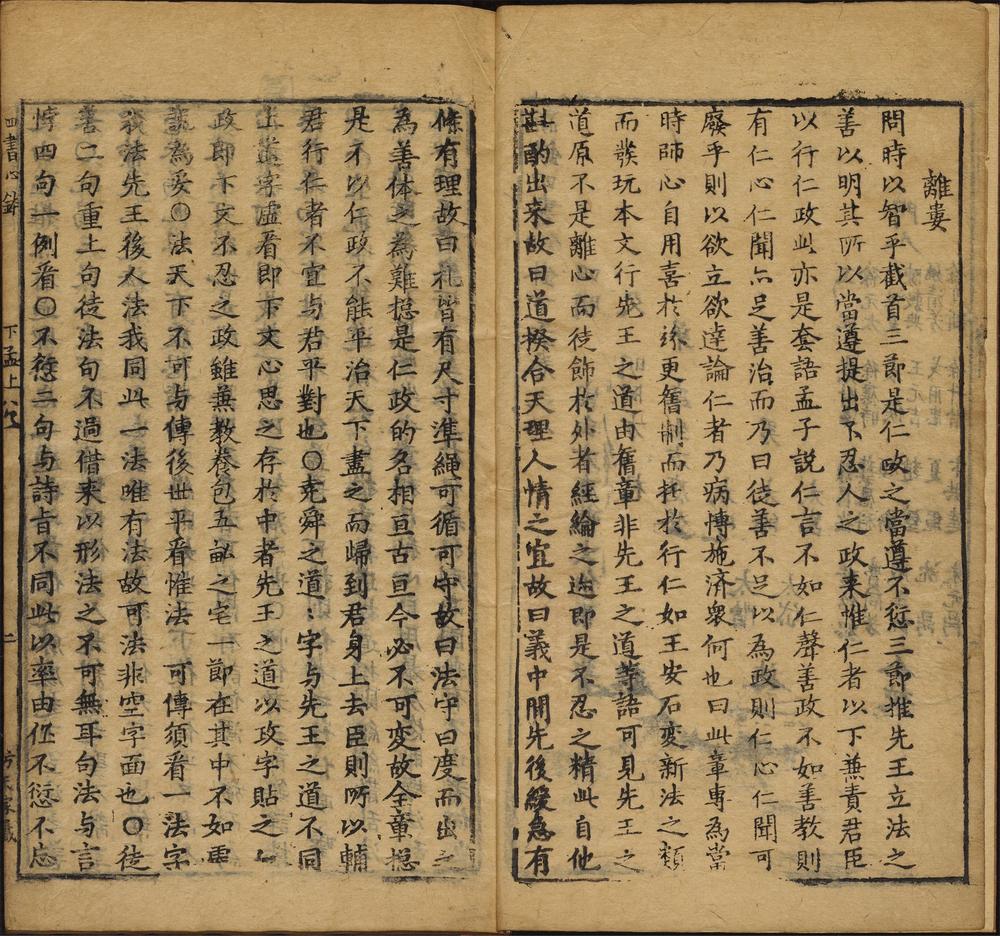 離婁
問時以智乎截首三節是仁政之當遵不愆三節推先王立法之
善以明其所以當遵提出不忍人之政来惟仁者以下兼責君臣
以行仁政此亦是套語孟子説仁言不如仁聲善政不如善教則
有仁心仁聞亦足善治而乃曰徒善不足以為政則仁心仁聞可
廢乎則以欲立欲達論仁者乃病愽施済衆何也曰此章専為當
時師心自用喜於紛更舊制而托於行仁如王安石変新法之類
而發玩本文行先王之道由舊章非先王之道等語可見先王之
道原不是離心而徒飾於外者經綸之迹即是不忍之精此自他
斟酌出来故曰道揆合天理人情之宜故曰義中間先後緩急有
條有理故曰礼皆有尺寸準繩可循可守故曰法守曰度而出之
為善体之為難捴是仁政的名相亘古亘今必不可変故全章捴
是不以仁政不能平治天下盡之而歸到君身上去臣則所以輔
君行仁者不宜与君平對也〇尭舜之道:字与先王之道不同
上道字虚看即下文心思之存於中者先王之道以政字貼之
政即下文不忍之政雖兼教養包五畝之宅一節在其中不如
説為妥〇法天下不可与傳後世平看惟法可傳須看一法字
我法先王後人法我同此一法唯有法故可法非空字面也〇徒
善二句重上句徒法句不過借来以形法之不可無耳句法与言
悖四句一例看〇不愆二句与詩旨不同此以率由作不愆不忘
四書心錄
下孟上
二